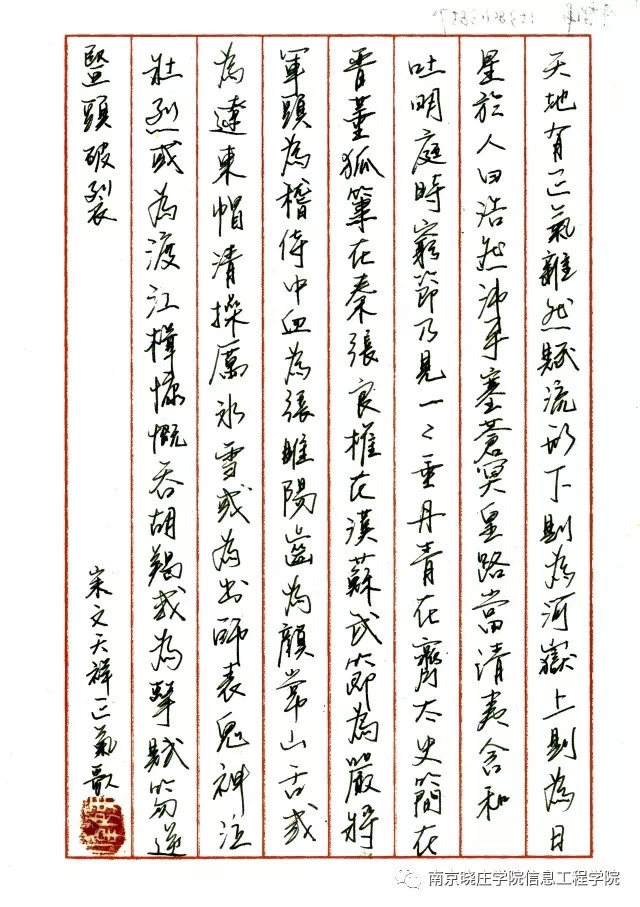 天地有正氣雜然賦流形下則為河嶽上則為日
星於人曰浩然沛乎塞蒼冥皇路當清夷含和
吐明庭時窮節乃見一〻垂丹青在齊太史簡在
晋董狐筆在秦張良椎在漢蘇武節為嚴將
軍頭為嵇侍中血為張睢陽齒為顏常山舌或
為遼東帽清操厲冰雪或為出師表鬼神泣
壯烈或為渡江楫慷慨吞胡羯或為擊賊笏逆
豎頭破裂
宋文天祥正氣歌
南京晓庄学院信息工程学院